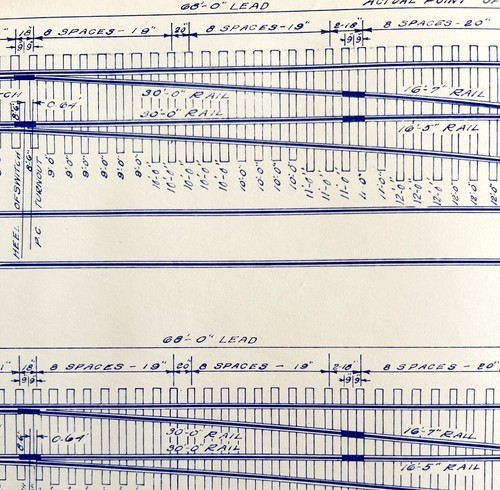 68'-0" LEAD
ACTUAL POINT OF
18" 8 SPACES - 19" 20" 8 SPACES - 19" 2-18" 8 SPACES - 20"
9 9 9 9
30'-0" RAIL 16'-7" RAIL
0.64'
30'-0" RAIL 16'-5" RAIL
8'-6" 8'-6" 9'-0" 9'-0" 9'-0" 9'-0" 9'-0" 9'-0" 10'-0" 10'-0" 10'-0" 10'-0" 10'-0" 10'-0" 10'-0" 10'-0" 11'-0" 11'-0" 11'-0" 11'-0" 11'-0" 12'-0" 12'-0" 12'-0" 12'-0" 12'-0"
HEEL OF SWITCH
P.C. TURNOUT
68'-0" LEAD
18" 8 SPACES - 19" 20" 8 SPACES - 19" 2-18" 8 SPACES - 20"
9 9 9 9
30'-0" RAIL 16'-7" RAIL
8'-6" 0.64'
30'-0" RAIL 16'-5" RAIL